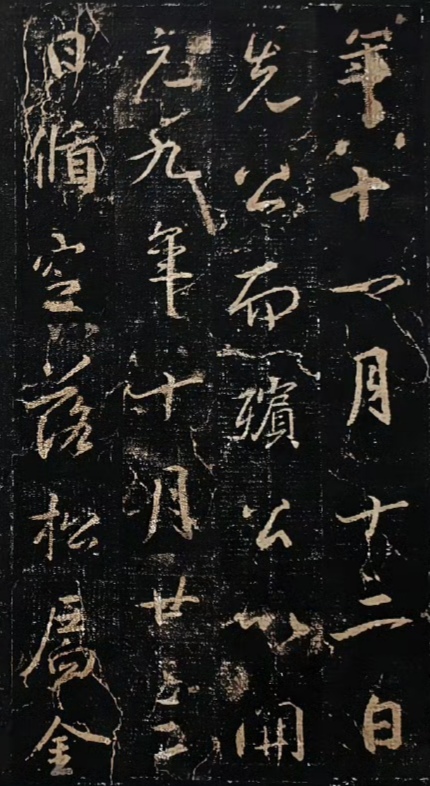 年十一月十二日
先公而殯公以開
元九年十月廿三
日循空落松扃金